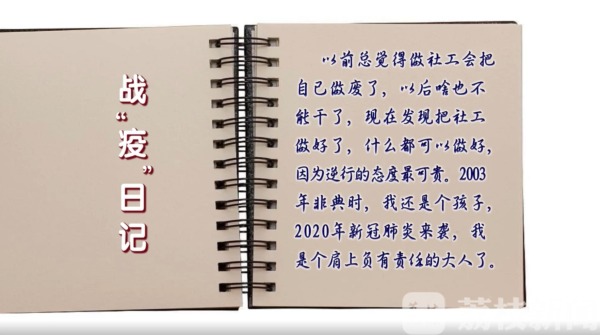 战“疫”日记
以前总觉得做社工会把
自己做废了，以后啥也不
能干了，现在发现把社工
做好了，什么都可以做好，
因为逆行的态度最可贵。2003
年非典时，我还是个孩子，
2020年新冠肺炎来袭，我
是个肩上负有责任的大人了。
荔枝新闻